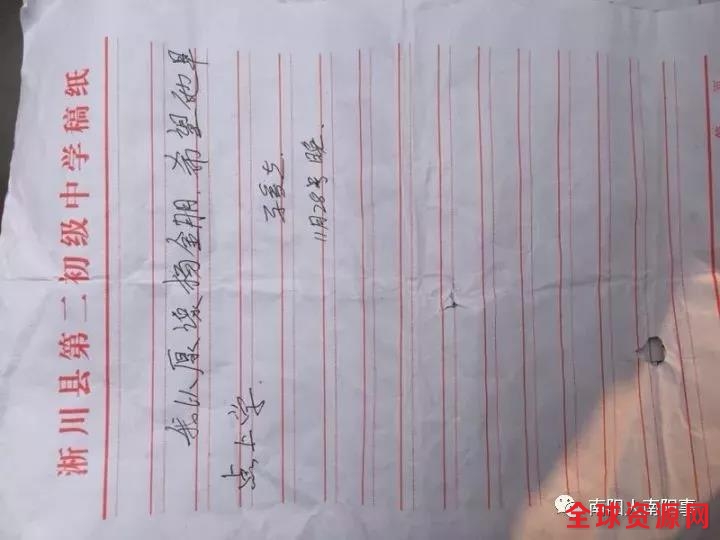 淅川县第二初级中学稿纸
我以原谅杨金朋.希望他早
点上学.
11月28号 晚.
南阳人南阳事
全球资源网